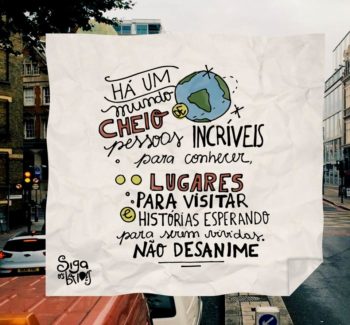 HÁ UM
mundo
CHEIO de
pessoas INCRÍVEIS
para conhecer,
LUGARES
PARA VISITAR
E HISTÓRIAS ESPERANDO
para serem vividas.
NÃO DESANIME
Siga
os